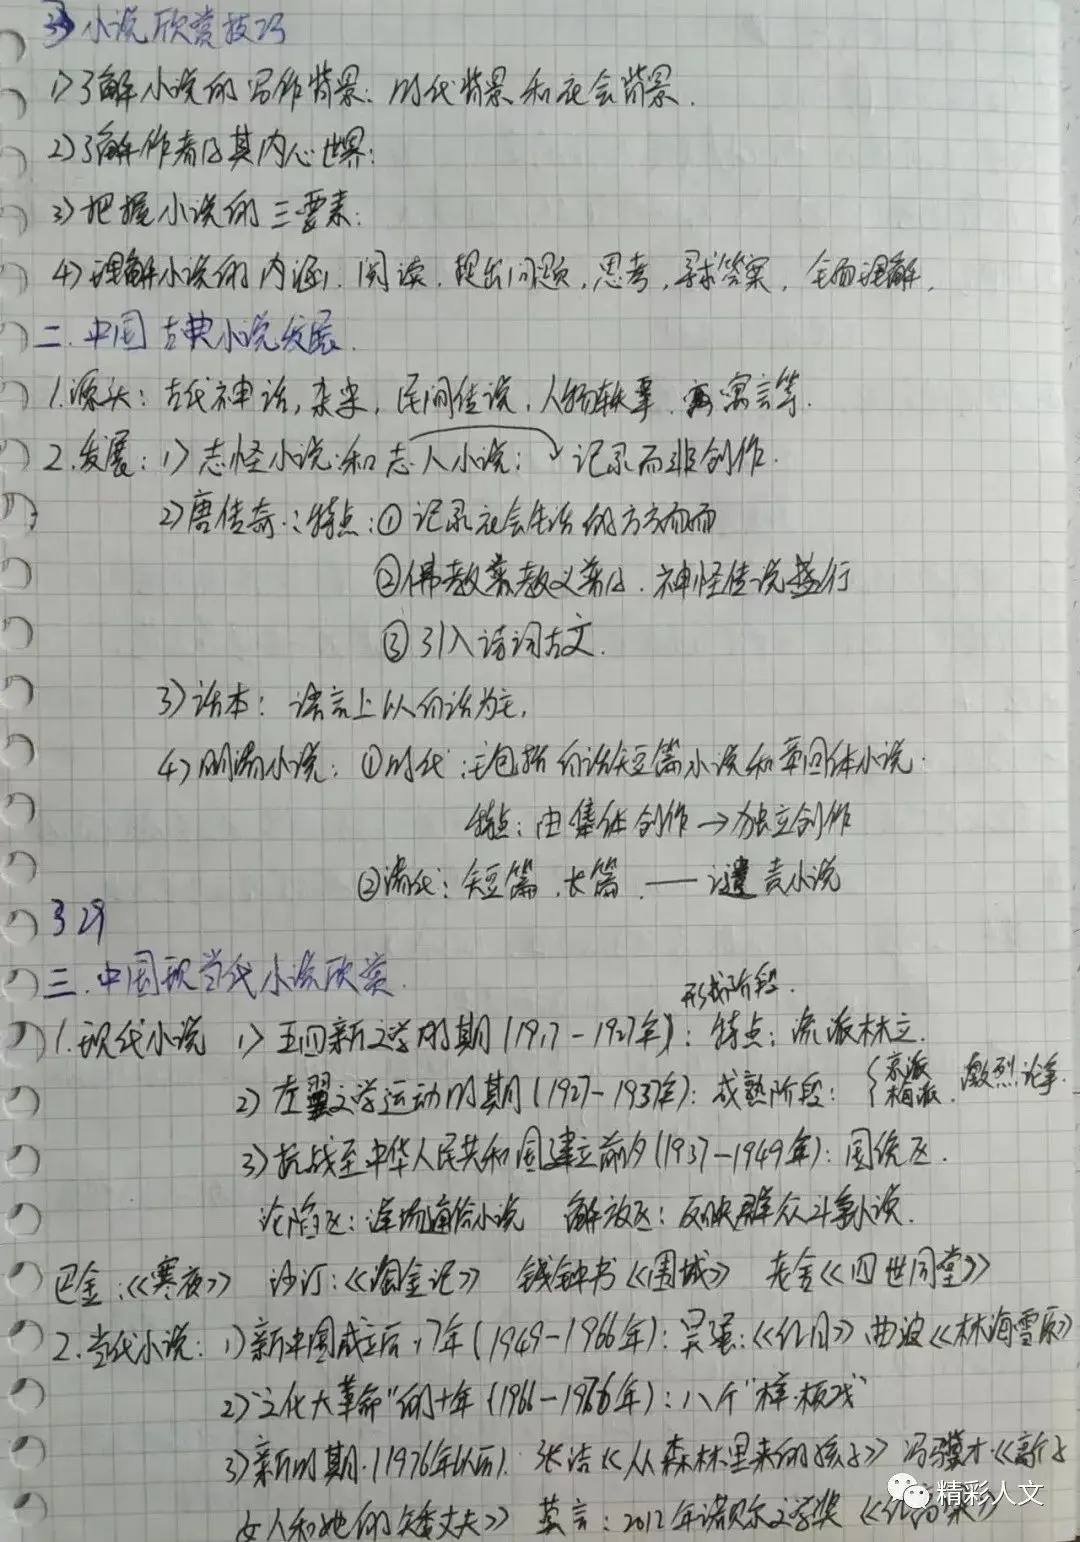 3) 小说欣赏技巧
1)了解小说的写作背景:时代背景和社会背景.
2)了解作者及其内心世界:
3)把握小说的三要素:
4)理解小说的内涵,阅读,提出问题,思考,寻求答案,全面理解.
二.中国古典小说发展.
1.源头:古代神话,民间传说,人物轶事,寓言等.
2.发展:1)志怪小说和志人小说:记录而非创作.
2)唐传奇:特点:①记录社会生活的方方面面
②佛教教义普及.神怪传说盛行
③引入诗词古文.
3)话本:语言上以白话为主.
4)明清小说:①明代:主包括白话短篇小说和章回体小说.
特点:由集体创作→独立创作
②清代:短篇.长篇.——谴责小说
329
三.中国现当代小说欣赏.
形成阶段.
1.现代小说 1)五四新文学时期(1917-1927年):特点:流派林立.
2)左翼文学运动时期(1927-1937年):成熟阶段:{京派 海派.激烈论争
3)抗战至中华人民共和国建立前夕(1937-1949年):国统区.
沦陷区:洋场通俗小说 解放区:反映群众斗争小说.
巴金:《寒夜》 沙汀:《淘金记》 钱钟书《围城》 老舍《四世同堂》
2.当代小说:1)新中国成立后17年(1949-1966年):吴强:《红日》曲波《林海雪原》
2)"文化大革命"的十年(1966-1976年):八个"样板戏"
3)新时期.(1976年以后).张洁《从森林里来的孩子》冯骥才《高个子
女人和她的矮丈夫》 莫言:2012年诺贝尔文学奖《红高粱》
精彩人文